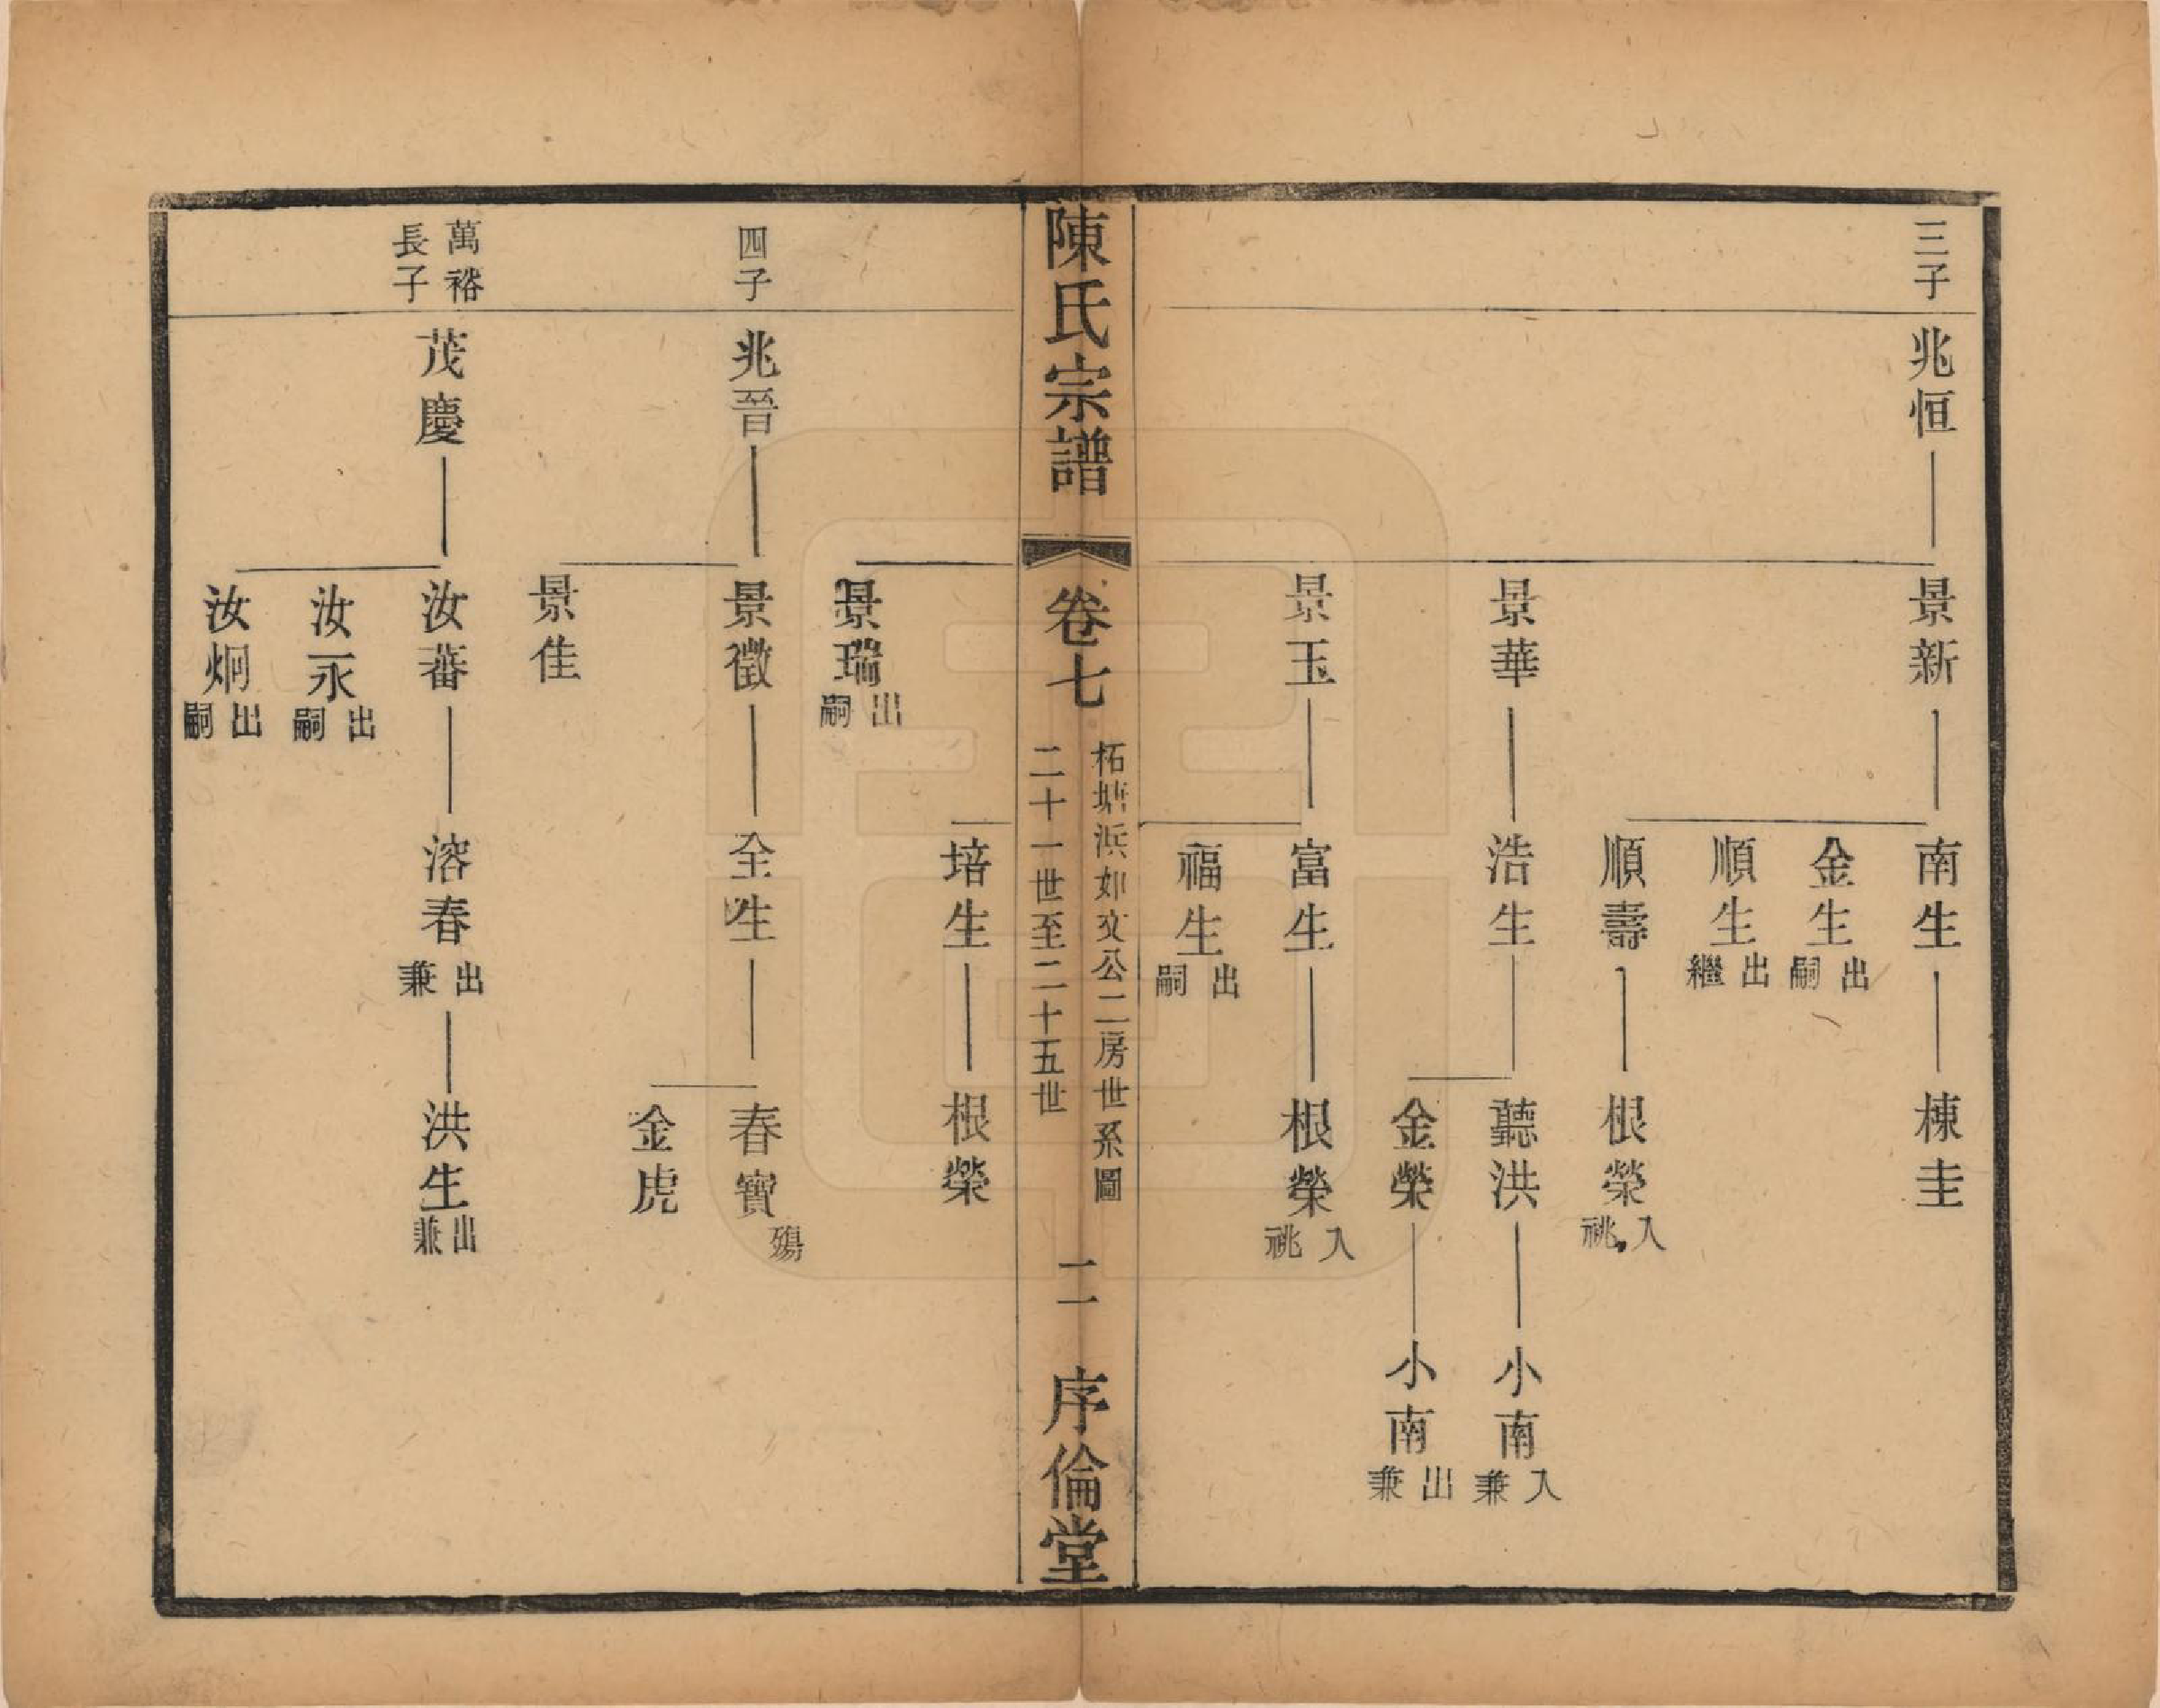 三子
兆恒
景新
南生
棟圭
金生
出嗣
順生
出繼
順壽
根榮
入祧
景華
浩生
聽洪
小南
入兼
金榮
小南
出兼
景玉
富生
根榮
入祧
福生
出嗣
陳氏宗譜
卷七
柘塘浜如文公二房世系圖
二十一世至二十五世
二
序倫堂
培生
根榮
景瑞
出嗣
四子
兆晉
景徵
全生
春寶
殤
金虎
景佳
萬裕
長子
茂慶
汝蕃
溶春
出兼
洪生
出兼
汝永
出嗣
汝炯
出嗣